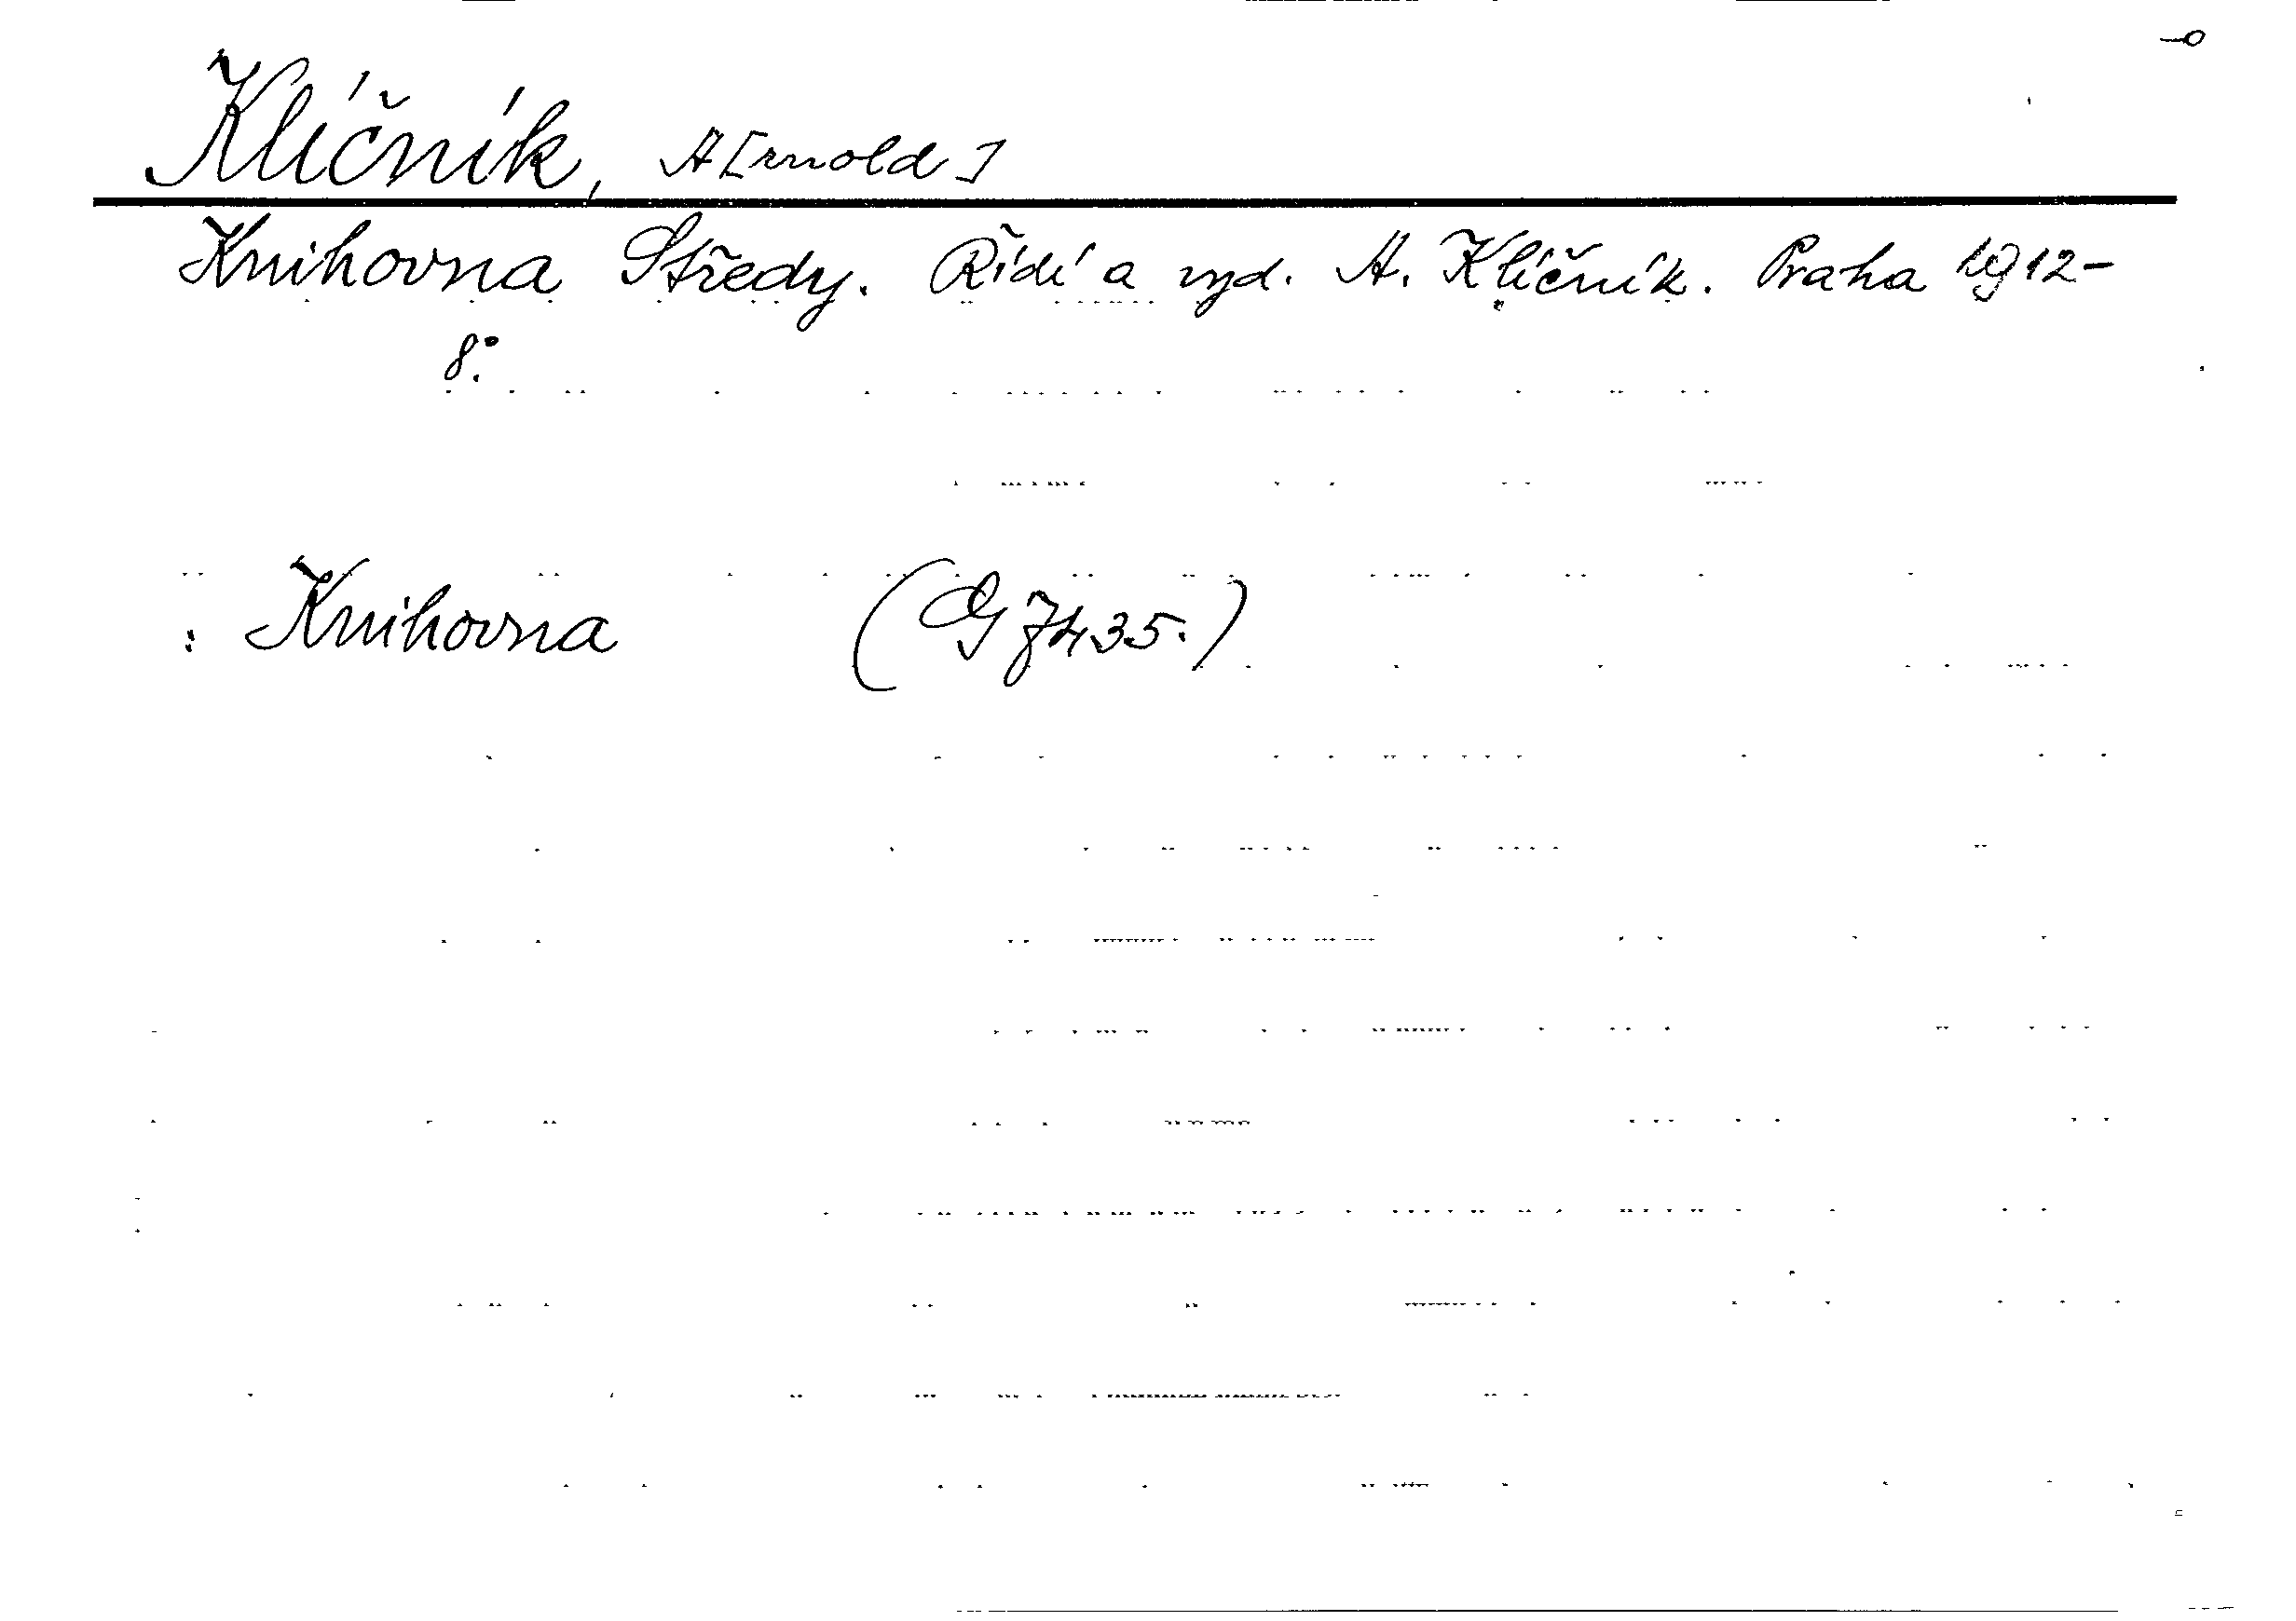 Klíčník, A[rnold]
Knihovna Středy. Řídí a vyd. A. Klíčník. Praha 1912-
8°.
: Knihovna (G 7435.)